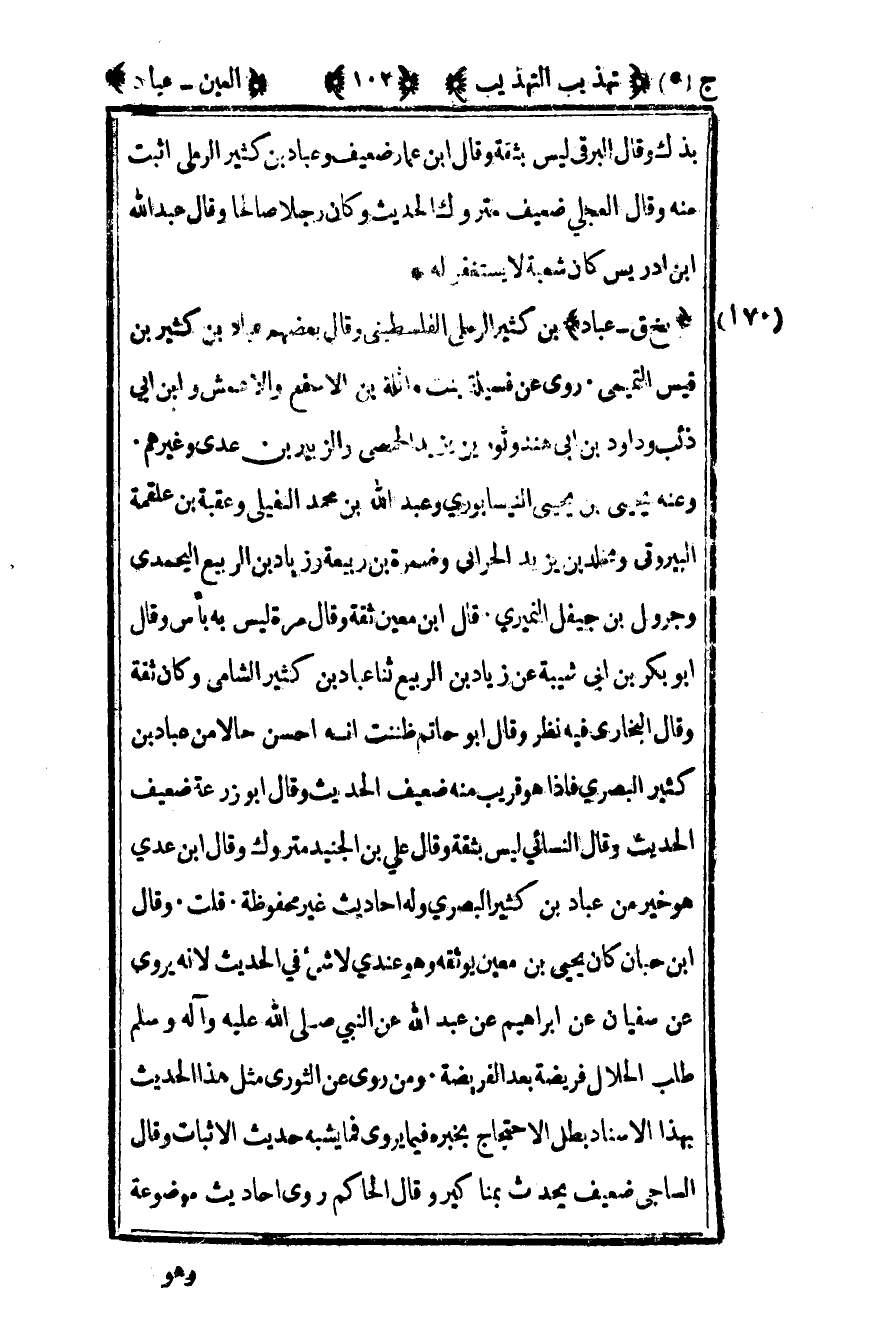 ج (٥) ﴿ تهذيب التهذيب ﴾ ﴿ ١٠٢ ﴾ ﴿ العين ـ عباد ﴾
بذلك وقال البرقي ليس بثقة وقال ابن عمار ضعيف وعباد بن كثير الرملي اثبت
منه وقال العجلي ضعيف متروك الحديث وكان رجلا صالحا وقال عبد الله
ابن ادريس كان شعبة لا يستغفر له *
(١٧٠) ﴿ بخ ق ـ عباد ﴾ بن كثير الرملي الفلسطيني وقال بعضهم عباد بن كثير بن
قيس التميمي ٠ روى عن فسيلة بنت واثلة بن الاسقع والاعمش وابن ابي
ذئب وداود بن ابي هند وثور بن يزيد الحمصي والزبير بن عدى وغيرهم ٠
وعنه يحيى بن يحيى النيسابوري وعبد الله بن محمد النفيلي وعقبة بن علقمة
البيروتى ومخلد بن يزيد الحراني وضمرة بن ربيعة وزياد بن الربيع اليحمدى
وجرول بن جيفل النميري ٠ قال ابن معين ثقة وقال مرة ليس به بأس وقال
ابو بكر بن ابي شيبة عن زياد بن الربيع ثنا عباد بن كثير الشامى وكان ثقة
وقال البخارى فيه نظر وقال ابو حاتم ظننت انه احسن حالا من عباد بن
كثير البصري فاذا هو قريب منه ضعيف الحديث وقال ابو زرعة ضعيف
الحديث وقال النسائي ليس بثقة وقال علي بن الجنيد متروك وقال ابن عدي
هو خير من عباد بن كثير البصري وله احاديث غير محفوظة ٠ قلت ٠ وقال
ابن حبان كان يحيى بن معين يوثقه وهو عندي لا شئ في الحديث لانه يروى
عن سفيان عن ابراهيم عن عبد الله عن النبي صلى الله عليه وآله وسلم
طلب الحلال فريضة بعد الفريضة ٠ ومن روى عن الثورى مثل هذا الحديث
بهذا الاسناد بطل الاحتجاج بخبره فيما يروى فما يشبه حديث الاثبات وقال
الساجى ضعيف يحدث بمناكير وقال الحاكم روى احاديث موضوعة
وهو